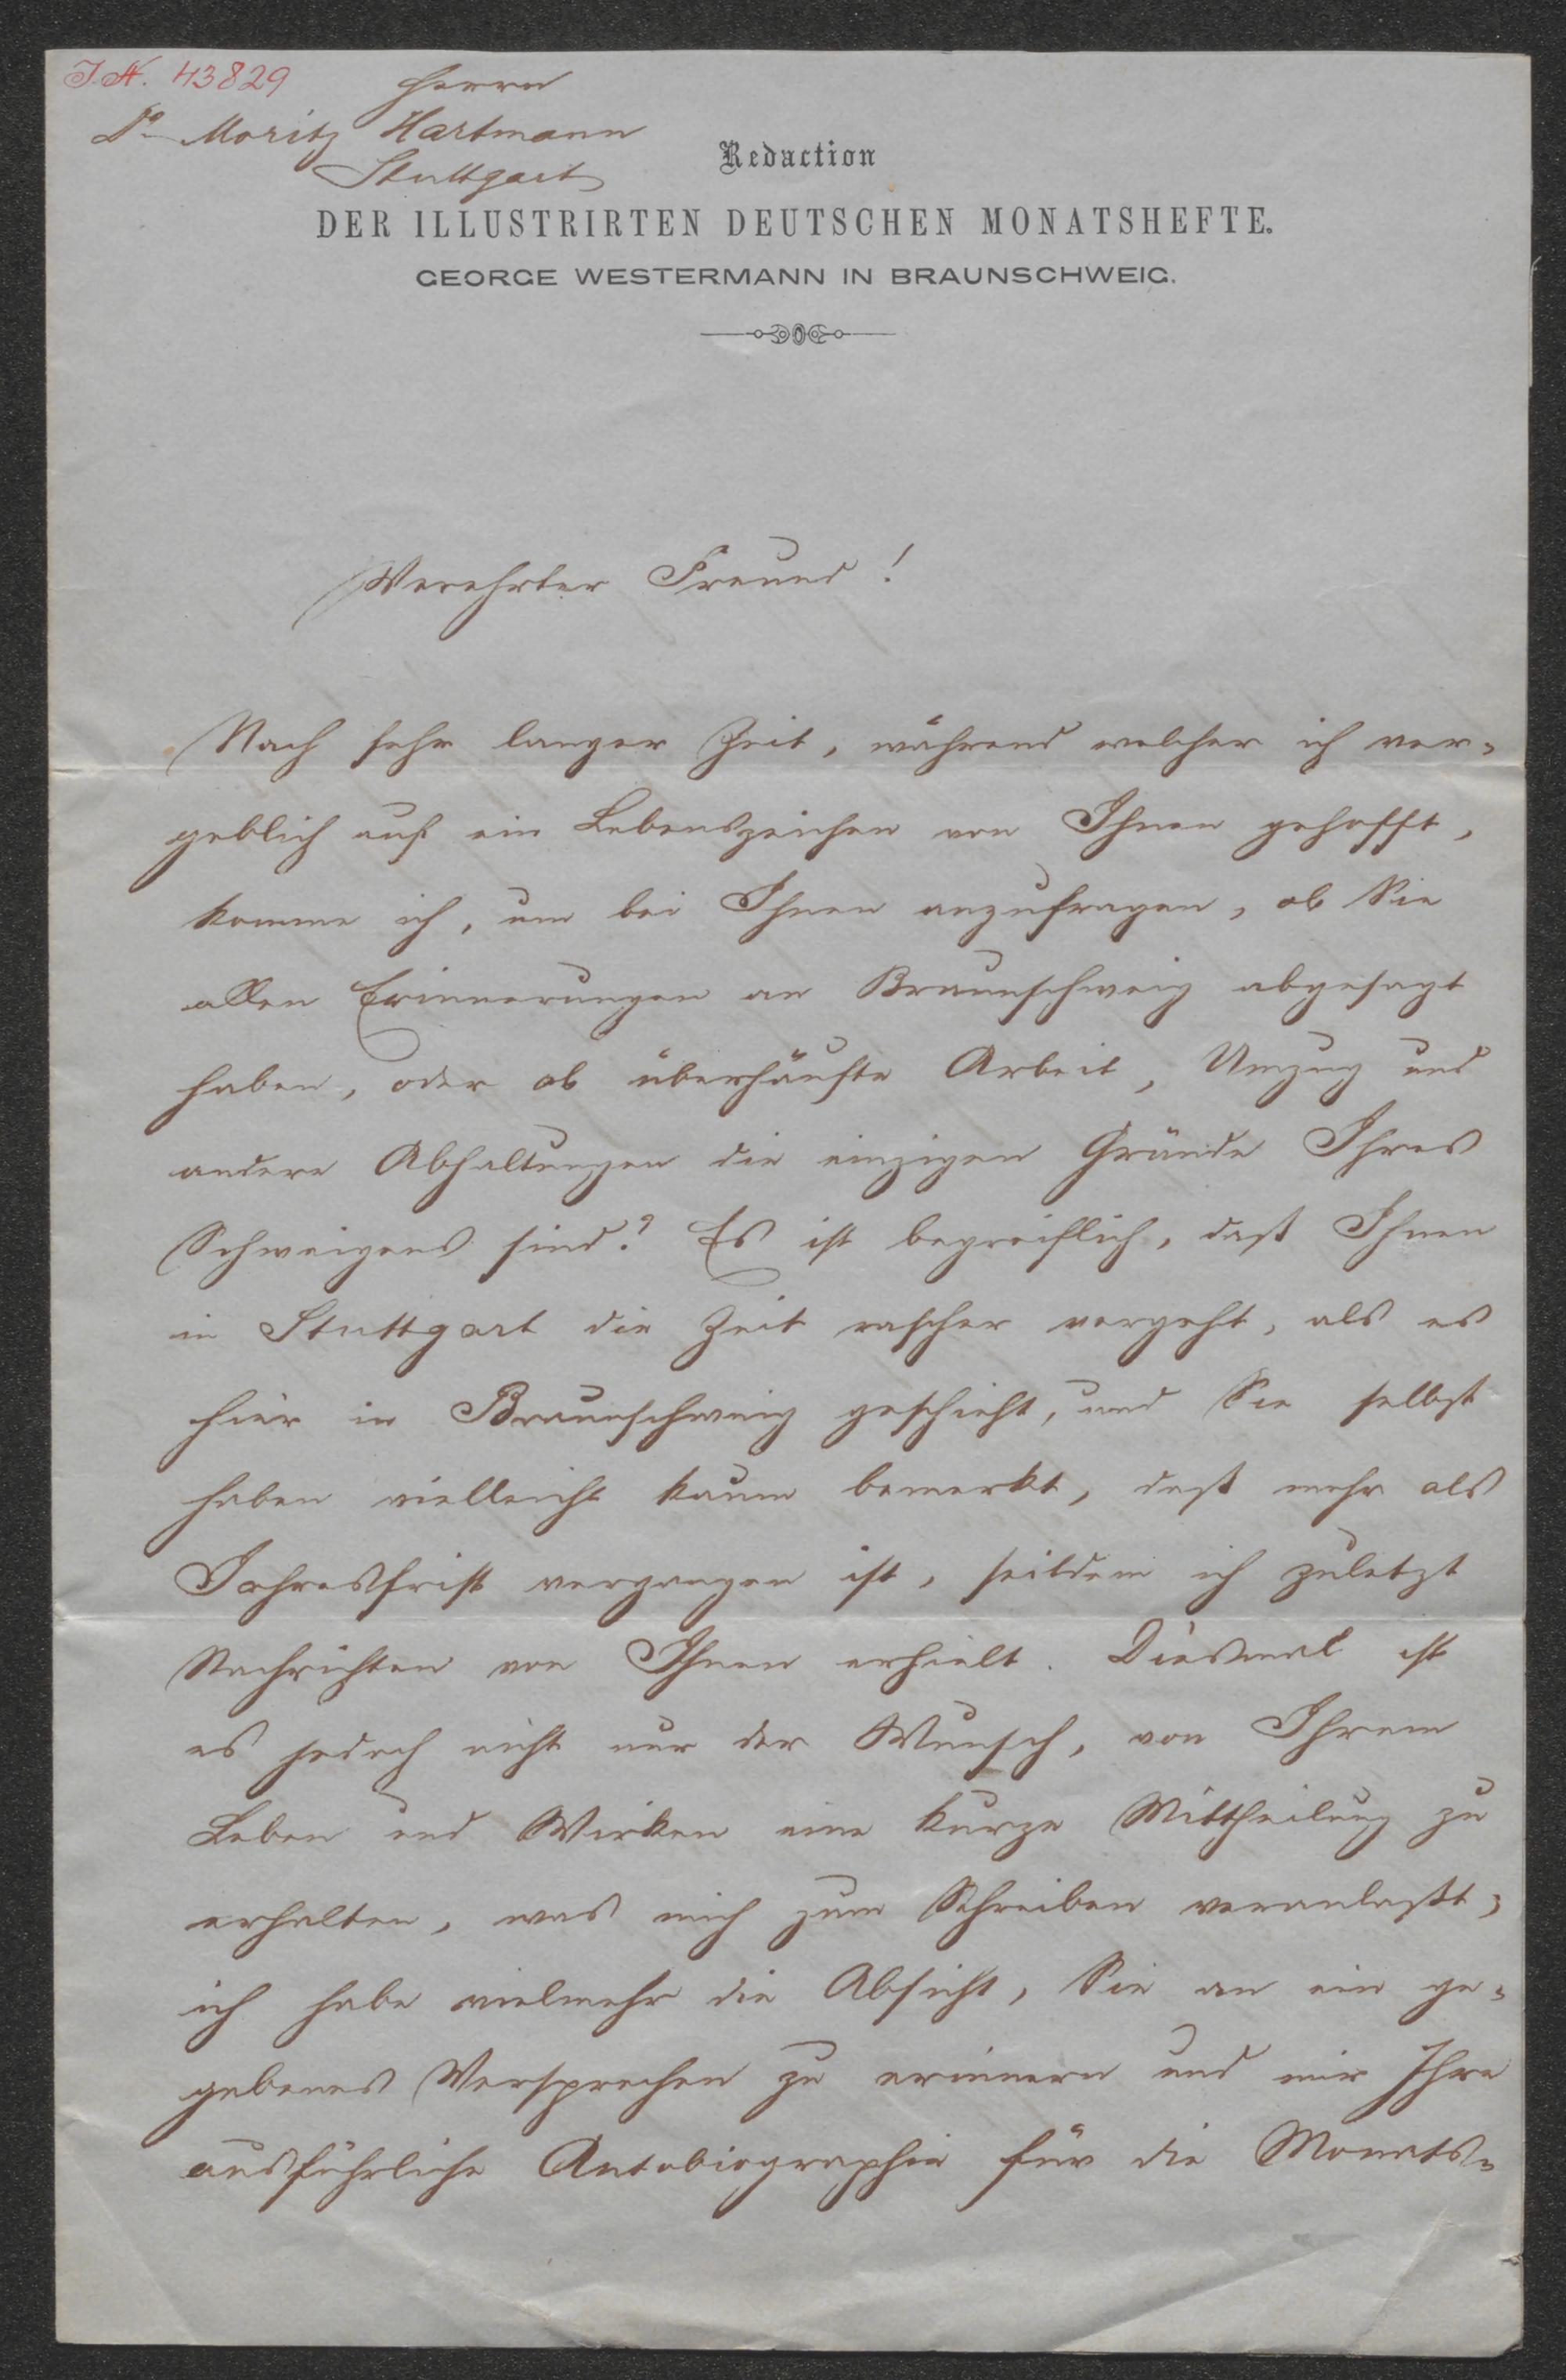 J.N. 43829
Herrn
Dr. Moritz Hartmann
Stuttgart
Redaction
DER ILLUSTRIRTEN DEUTSCHEN MONATSHEFTE.
GEORGE WESTERMANN IN BRAUNSCHWEIG.
Verehrter Freund!
Nach sehr langer Zeit, während welcher ich ver-
geblich auf ein Lebenszeichen von Ihnen gehofft,
komme ich, um bei Ihnen anzufragen, ob Sie
allen Erinnerungen an Braunschweig abgesagt
haben, oder ob überhäufte Arbeit, Umzug und
andere Abhaltungen die einzigen Gründe Ihres
Schweigens sind? Es ist begreiflich, daß Ihnen
in Stuttgart die Zeit rascher vergeht, als es
hier in Braunschweig geschieht, und Sie selbst
haben vielleicht kaum bemerkt, daß mehr als
Jahresfrist vergangen ist, seitdem ich zuletzt
Nachrichten von Ihnen erhielt. Diesmal ist
es jedoch nicht nur der Wunsch, von Ihrem
Leben und Wirken eine kurze Mittheilung zu
erhalten, was mich zum Schreiben veranlaßt,
ich habe vielmehr die Absicht, Sie an ein ge-
gebenes Versprechen zu erinnern und mir Ihre
ausführliche Autobiographie für die Monats-